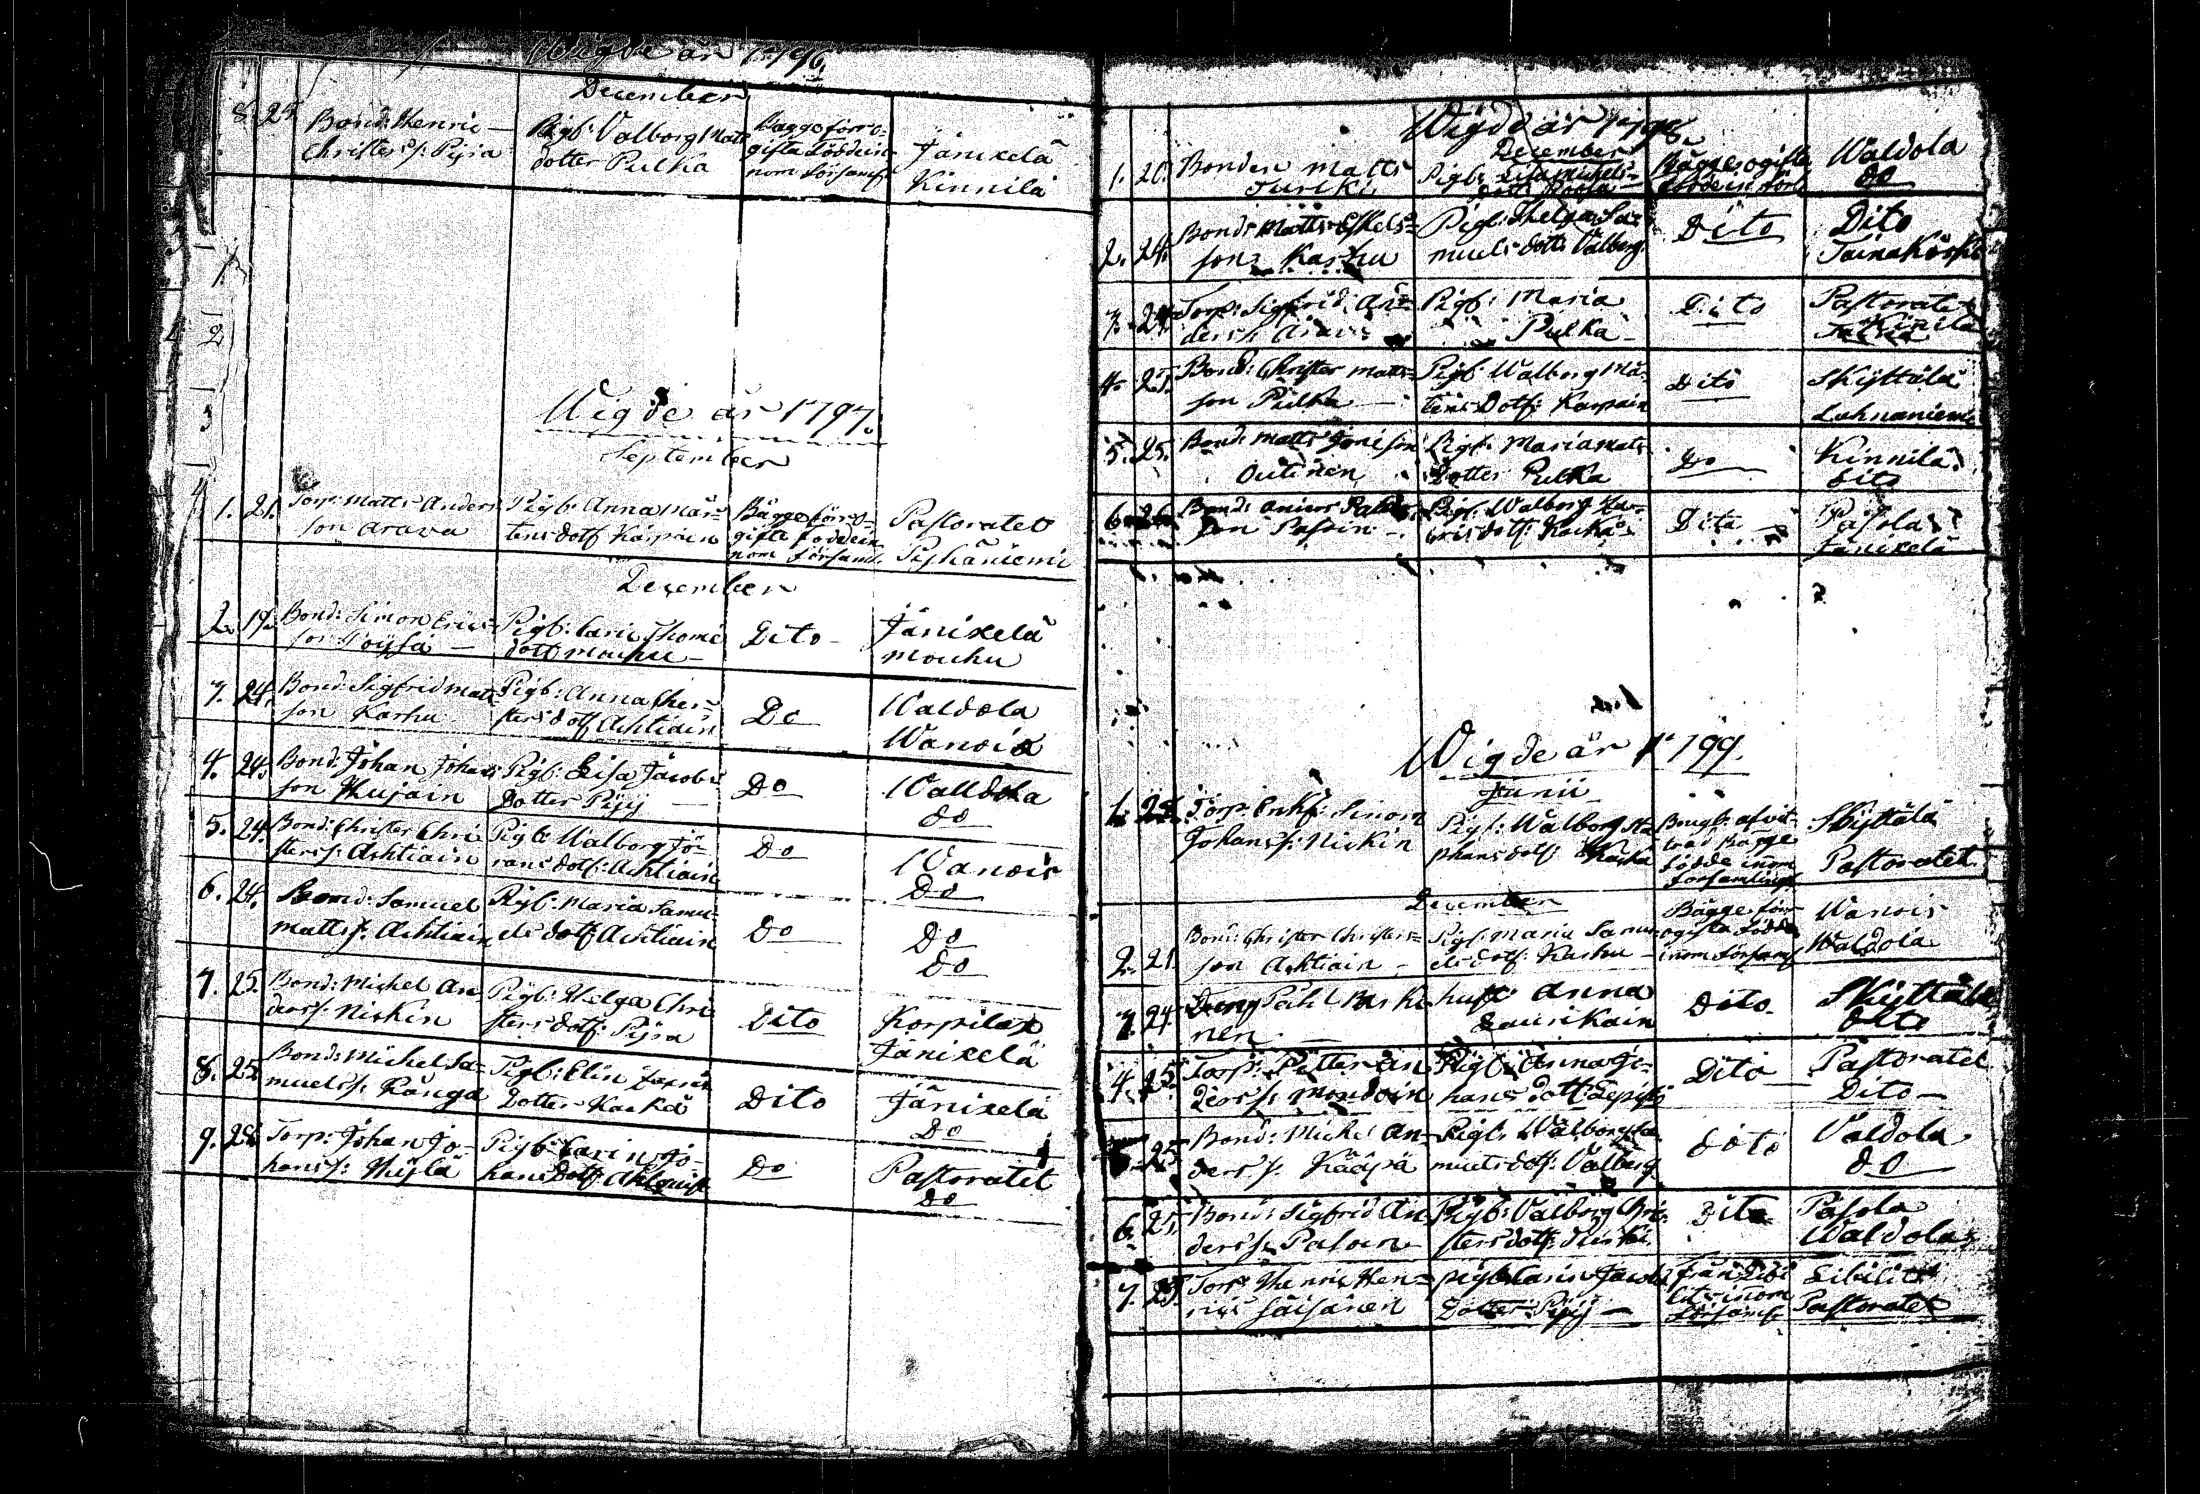 Wigde år 1796.
December
8. 25. Bond: Henric Christers: Pijra | Pigb: Valborg Mats dotter Pulka | Bägge förr ogifta födde innom församl | Jänixelä Kinnilä
Wigde år 1797.
September
1. 21. Torp: Matts Anders son Arava | Pigb: Anna Mår= tens dotf Karpain | Bägge förr o= gifta födde in nom församl. | Pastoratet Pijhäniemi
December
2. 19. Bond: Simon Eric= son Pöijsä — | Pigb: Carin Thome dotf Mouhu — | Dito — | Jänixelä Mouhu
3. 24. Bond: Sigfrid Mats son Karhu | Pigb: Anna Chri= sters dotf Ashtiain | Do | Waldola Wanois
4. 24. Bond: Johan Johans son Hujain | Pigb: Lisa Jacobs Dotter Pijij — | Do | Walldola do
5. 24. Bond: Christer Chri sterss: Ashtiain | Pigb: Walborg Jö= rans dotf: Ashtiain | Do | Wanois Do
6. 24. Bond: Samuel Mattss: Ashtiain | Pigb: Maria Samu= els dotf Ashtiain | Do | Do Do
7. 25. Bond: Michel An derss: Niskin | Pigb: Helga Chri sters dotf: Pijra | Dito | Korpilax Jänixelä
8. 25. Bond: Michel Sa= muelss: Kånga | Pigb: Elin Dotter Kaskä | Dito | Jänixelä Do
9. 26. Torp: Johan Jo= hanss: Hijlä | Pigb: Carin Jo= hans Dotf: Ahlquist | Do | Pastoratet Do
Wigde år 1798.
December
1. 20. Bonden Matts Turcki | Pigb: Lisa Michels= dott: | Bägge ogifta födde in förs | Waldola do
2. 24. Bond: Matts Eskels= son Karhu | Pigb: Helga Sa= muels dott: Valberg | Dito | Dito Tainakoski
3. 24. Torp: Sigfrid An= derss: Arava | Pigb: Maria Pulka — | Dito | Pastoratet Kinilä
4. 25. Bond: Christer Matts= son Pulka — | Pigb: Walborg Mår= tens Dotf: Karpain | Dito | Skyttälä Lahnaniemi
5. 25. Bond: Matts Jönison Outinen | Pigb: Maria Mats Dotter Pulka | Do | Kinnilä dito
6. 26. Bond: Anders Pauls son Pasoin — | Pigb: Walborg Hen= rics dotf: Kaskä | Dito | Pasola Jänixelä
Wigde år 1799.
Junii
1. Torp: Enkf: Simon Johanss: Niskin | Pigb: Walborg Sta phans dotf: Kaskä | Brugb: afvit= trad Bägge födde inom församlingf | Skyttälä Pastoratet
December
2. 21. Bond: Christer Christers= son Ashtiain — | Pigb: Maria Samu= els dotf: Karhu — | Bägge förr ogifta födde inom församl | Wanois Waldola
3. 24. Dreng Påhl Baski nen — | hust: Anna Laurikain | Dito. | Skyttälä dito
4. 25. Torp: Petter An derss: Mondoin | Pigb: Anna Jo= hans dotf: Lepistö | Dito | Pastoratet Dito —
5. 25. Bond: Michel An= derss: Kääpä | Pigb: Walborg Sa muels dotf: Valberg | dito | Valdola do
6. 25. Bond: Sigfrid An derss: Pasoin | Pigb: Valborg Chri= sters dotf: Turcki | Dito | Pasola Waldola
7. 25. Torp: Henric Hen= rics Säisänen | Pigb: Carin Jacobs Dotter: Pijij — | från Libe litz inom församl: | Libilitz Pastoratet